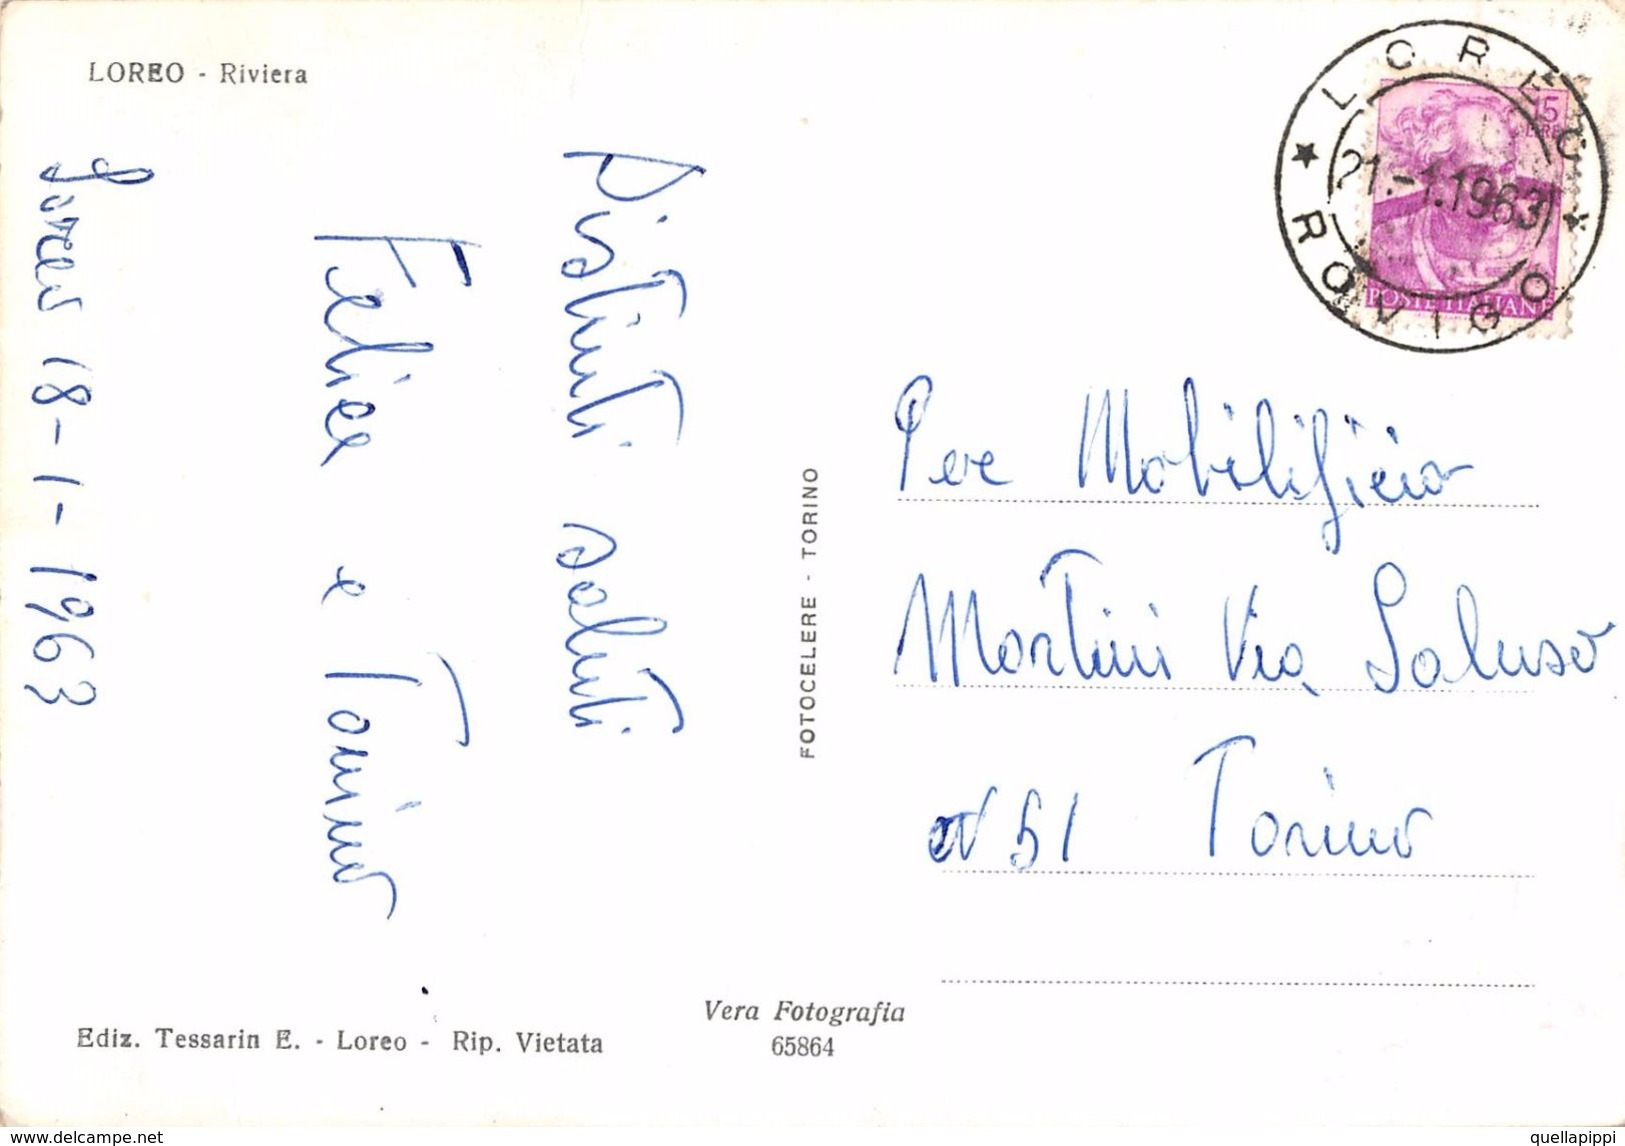 LOREO - Riviera
Loreo 18-1-1963
Distinti saluti
Felice e Tonino
FOTOCELERE - TORINO
LOREO
15
LIRE
21.-1.1963
POSTE ITALIANE
ROVIGO
Per Mobilificio
Martini Via Saluso
N 51 Torino
Vera Fotografia
65864
Ediz. Tessarin E. - Loreo - Rip. Vietata
www.delcampe.net
quellapippi